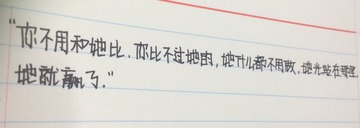 "你不用和她比.你比不过她的,她什么都不用做,她光站在那里
她就赢了."